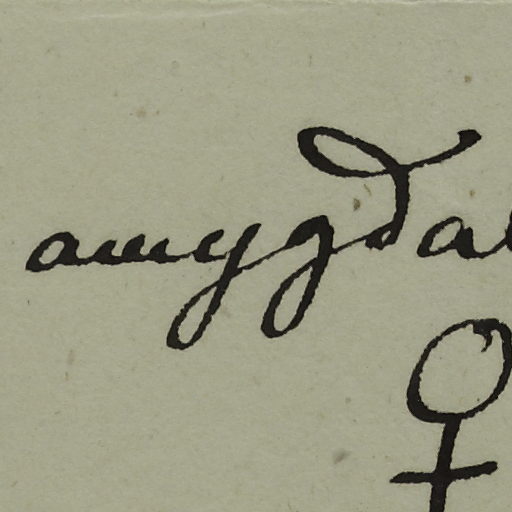 amygdal
♀